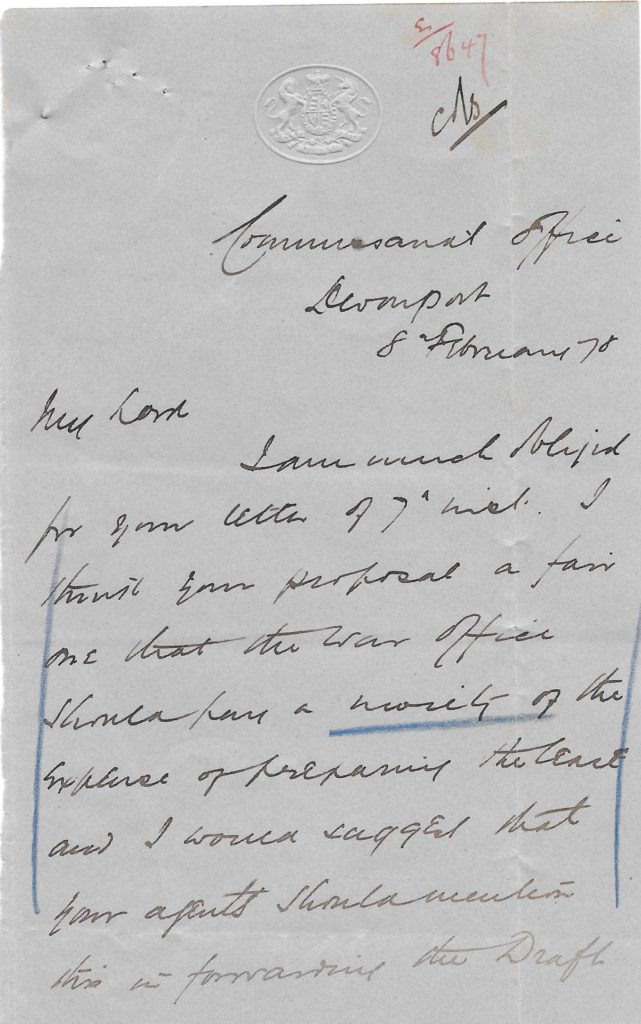 E/8647
Commissariat Office
Devonport
8th February 78
My Lord
I am much obliged
for your letter of 7th inst. I
think your proposal a fair
one that the War Office
should pay a moiety of the
expense of preparing the lease
and I would suggest that
your agents should mention
this in forwarding the Draft